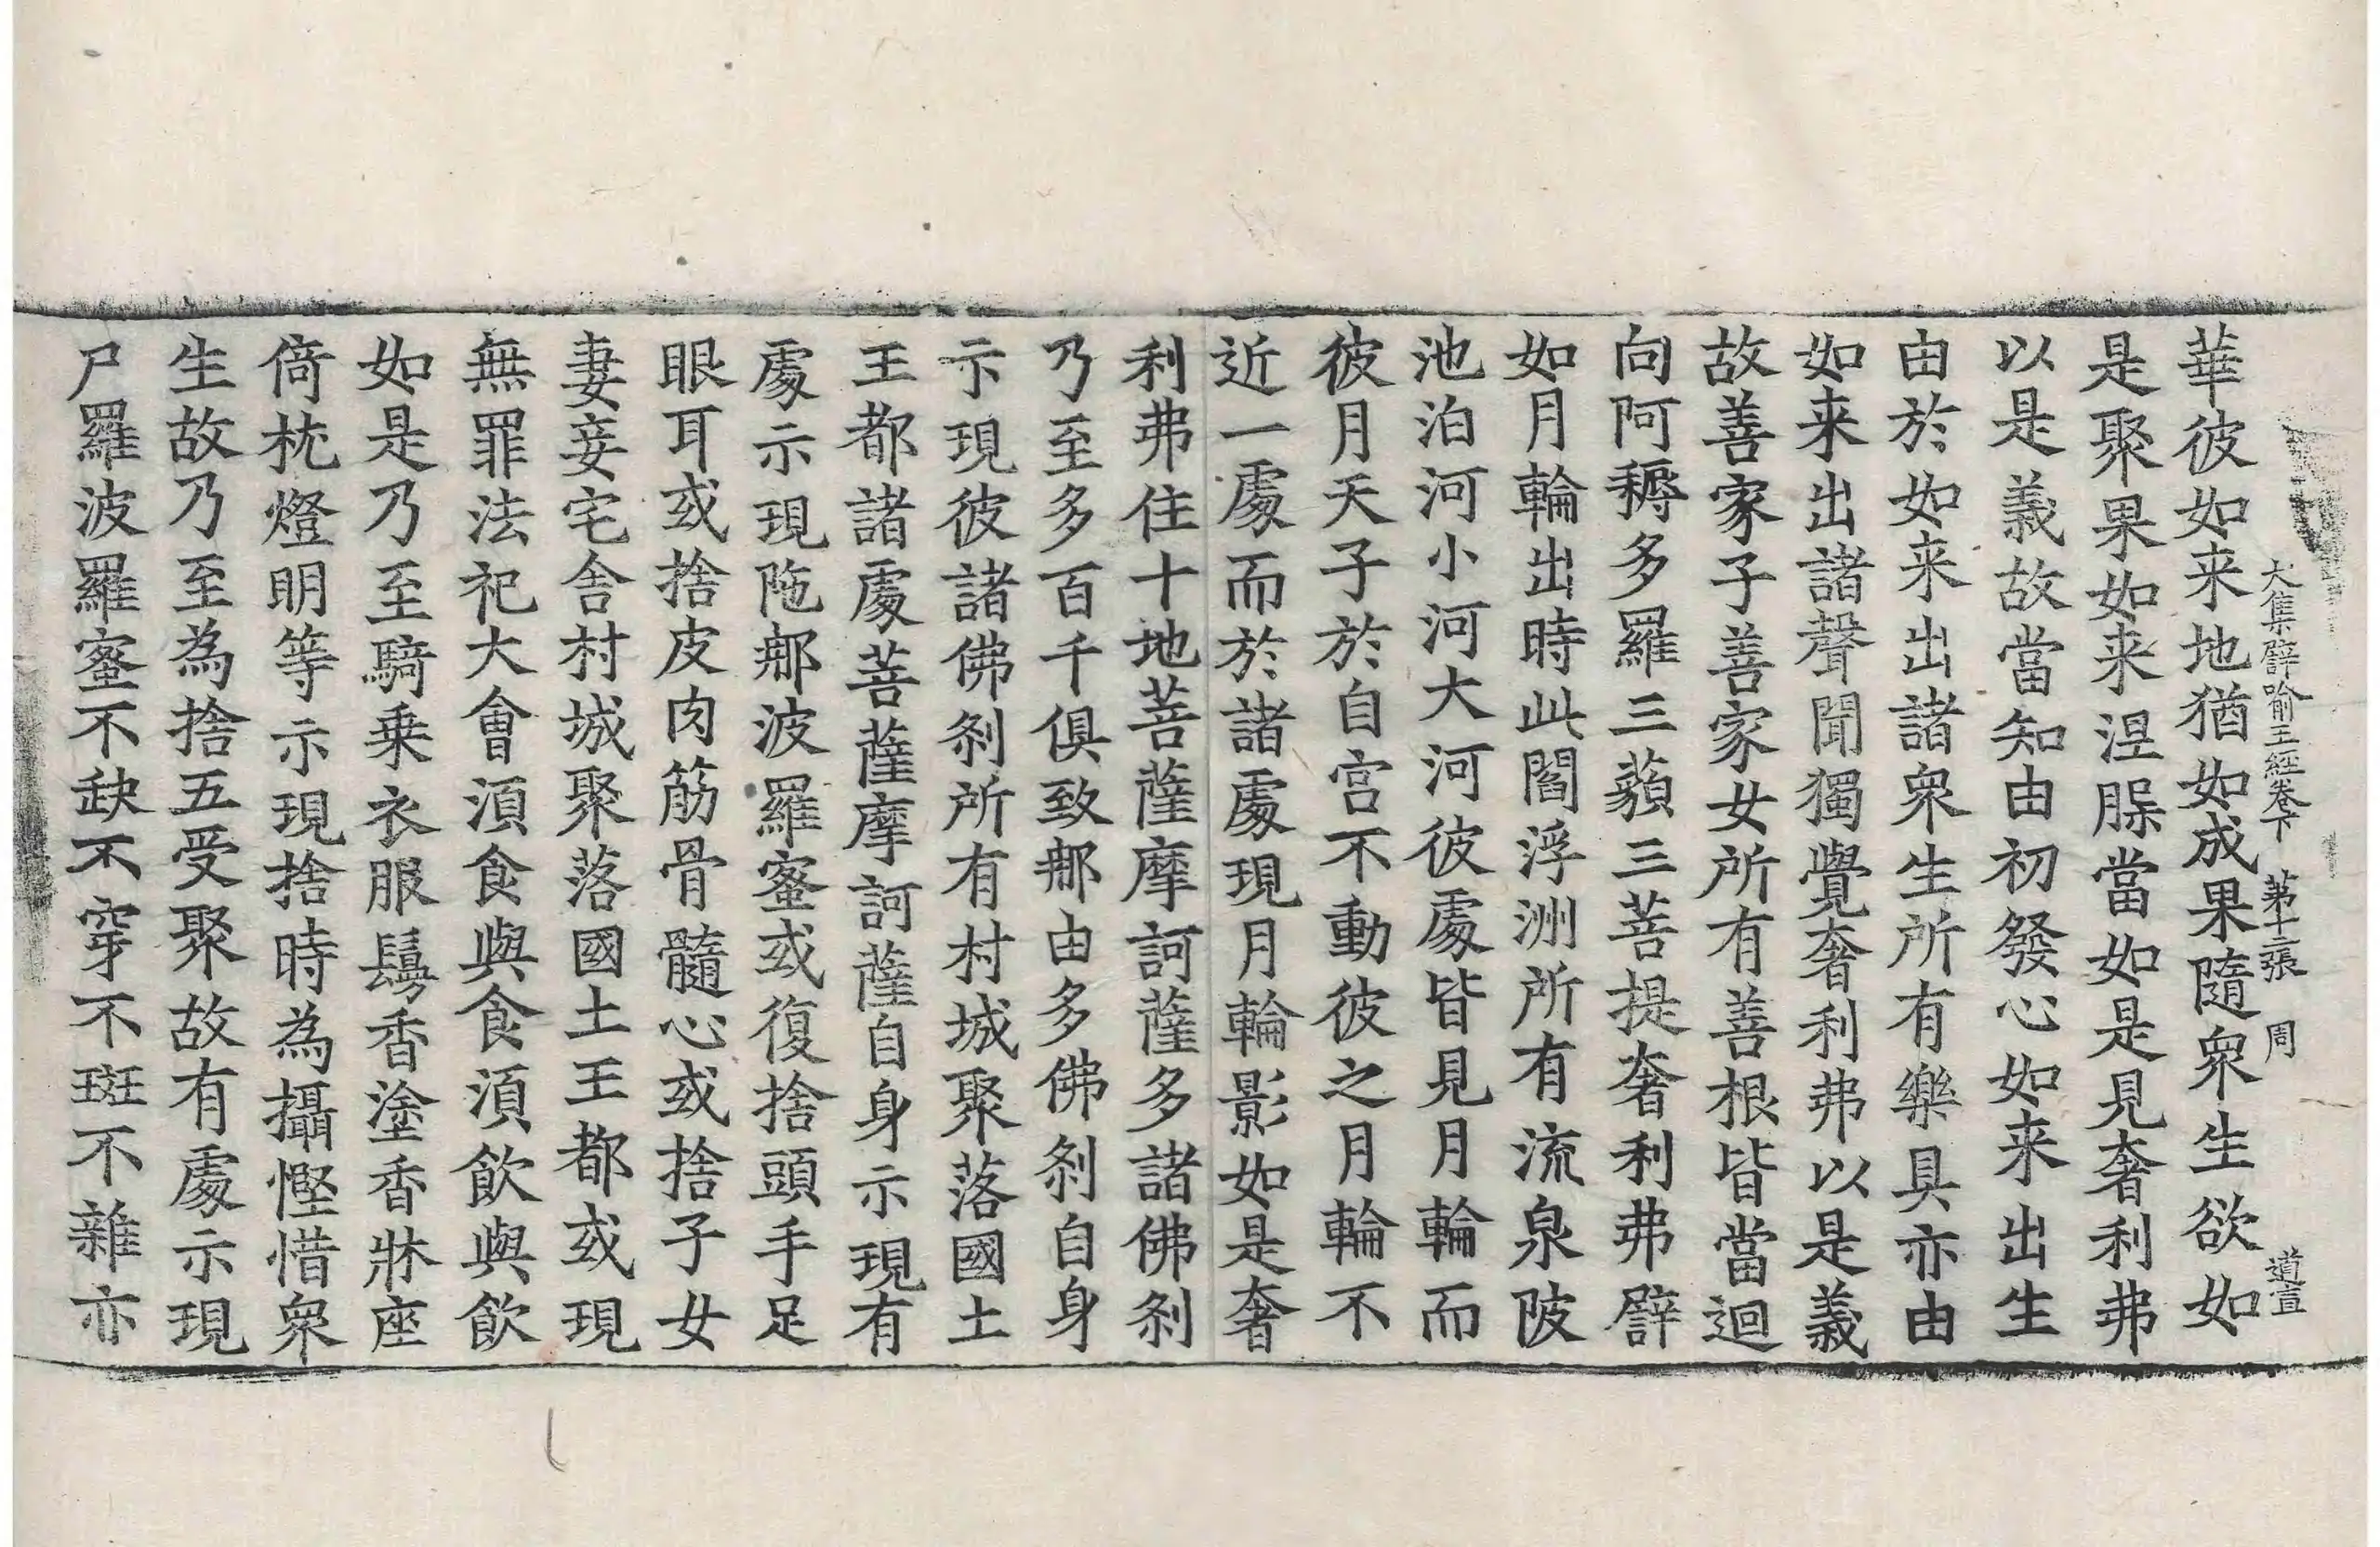 大集譬喻王經卷下　第十二張　周　道直
華彼如来地猶如成果隨衆生欲如
是聚果如来涅槃當如是見奢利弗
以是義故當知由初發心如来出生
由於如来出諸衆生所有樂具亦由
如来出諸聲聞獨覺奢利弗以是義
故善家子善家女所有善根皆當迴
向阿耨多羅三藐三菩提奢利弗譬
如月輪出時此閻浮洲所有流泉陂
池泊河小河大河彼處皆見月輪而
彼月天子於自宮不動彼之月輪不
近一處而於諸處現月輪影如是奢
利弗住十地菩薩摩訶薩多諸佛刹
乃至多百千俱致那由多佛刹自身
示現彼諸佛刹所有村城聚落國土
王都諸處菩薩摩訶薩自身示現有
處示現陁那波羅蜜或復捨頭手足
眼耳或捨皮肉筋骨髓心或捨子女
妻妾宅舍村城聚落國土王都或現
無罪法祀大會須食與食須飲與飲
如是乃至騎乗衣服鬘香塗香牀座
倚枕燈明等示現捨時為攝慳惜衆
生故乃至為捨五受聚故有處示現
尸羅波羅蜜不缺不穿不斑不雜亦